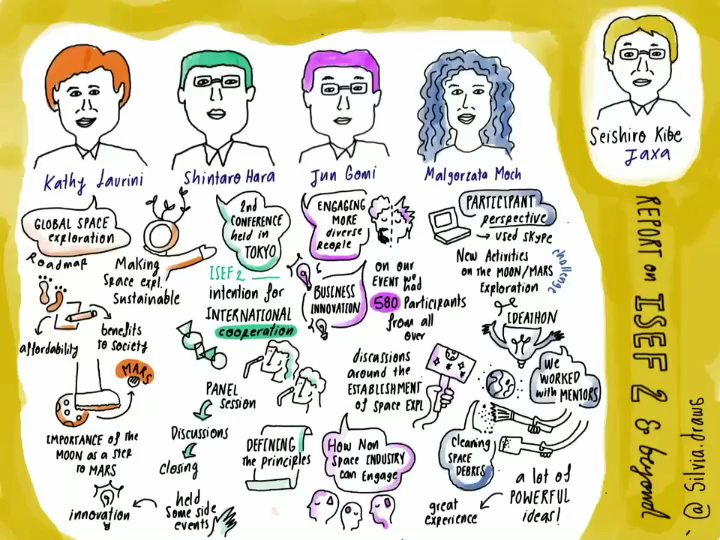 Kathy Laurini
GLOBAL SPACE
exploration
Roadmap
Making
Space expl.
Sustainable
affordability
benefits
to society
MARS
IMPORTANCE of the
MOON as a step
to MARS
innovation
held
Some side
events
Shintaro Hara
2nd
CONFERENCE
held in
TOKYO
ISEF 2
intention for
INTERNATIONAL
cooperation
PANEL
session
Discussions
closing
DEFINING
the principles
Jun Gomi
ENGAGING
MORE
diverse
people
BUSINESS
INNOVATION
on our
EVENT we
had
580 Participants
from all
over
discussions
around the
ESTABLISHMENT
of space EXPL
How Non
Space INDUSTRY
can Engage
Malgorzata Moch
PARTICIPANT
perspective
→ used skype
New Activities
on the MOON/MARS
Exploration
challenge
IDEATHON
We
WORKED
with MENTORS
Cleaning
SPACE
DEBRIS
a lot of
POWERFUL
ideas!
great
experience
Seishiro Kibe
Jaxa
REPORT on ISEF 2 & beyond
@silvia.draws